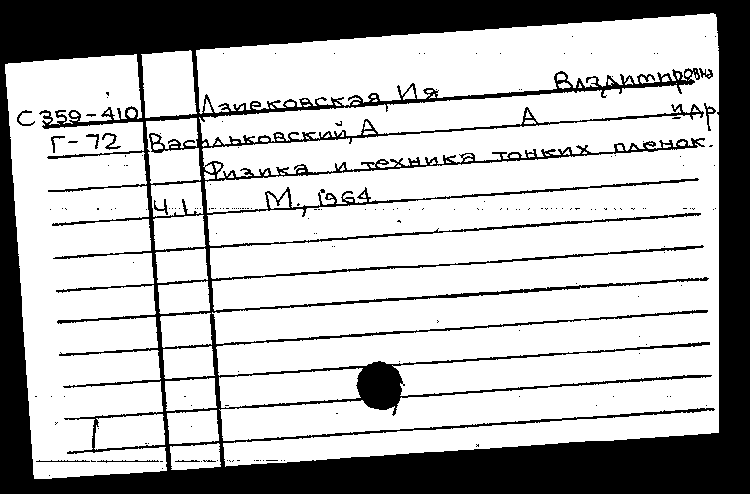 С359-410 Ия Владимировна
Г-72 Васильковский, А А и др.
Физика и техника тонких пленок.
Ч.1. М., 1964